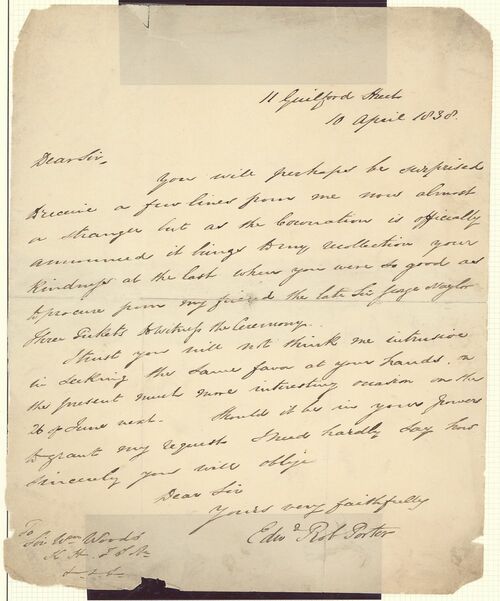 11 Guilford Street
10 April 1838.
Dear Sir,
You will perhaps be surprised
to receive a few lines from me now almost
a stranger but as the Coronation is officially
announced it brings to my recollection your
kindness at the last when you were so good as
to procure from my friend the late Sir George Naylor
three Tickets to witness the Ceremony.
I trust you will not think me intrusive
in seeking the same favor at your hands on
the present much more interesting occasion on the
26 of June next. Should it be in your power
to grant my request I need hardly say how
sincerely you will oblige
Dear Sir
Yours very faithfully
Edwd Rob Porter
To
Sir Wm Woods
K H
&c &c